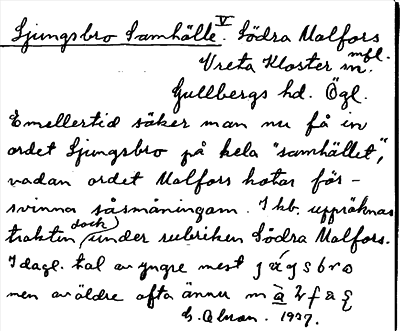 Ljungsbro Samhälle. V Södra Malfors
Vreta Kloster m. mfl.
Gullbergs hd. Ögl.
Emellertid söker man nu få in
ordet Ljungsbro på hela "samhället",
vadan ordet Malfors hotar för-
svinna såsmåningom. I hb. uppräknas
trakten dock under rubriken Södra Malfors.
I dagl. tal av yngre mest
men av äldre ofta ännu
1937.